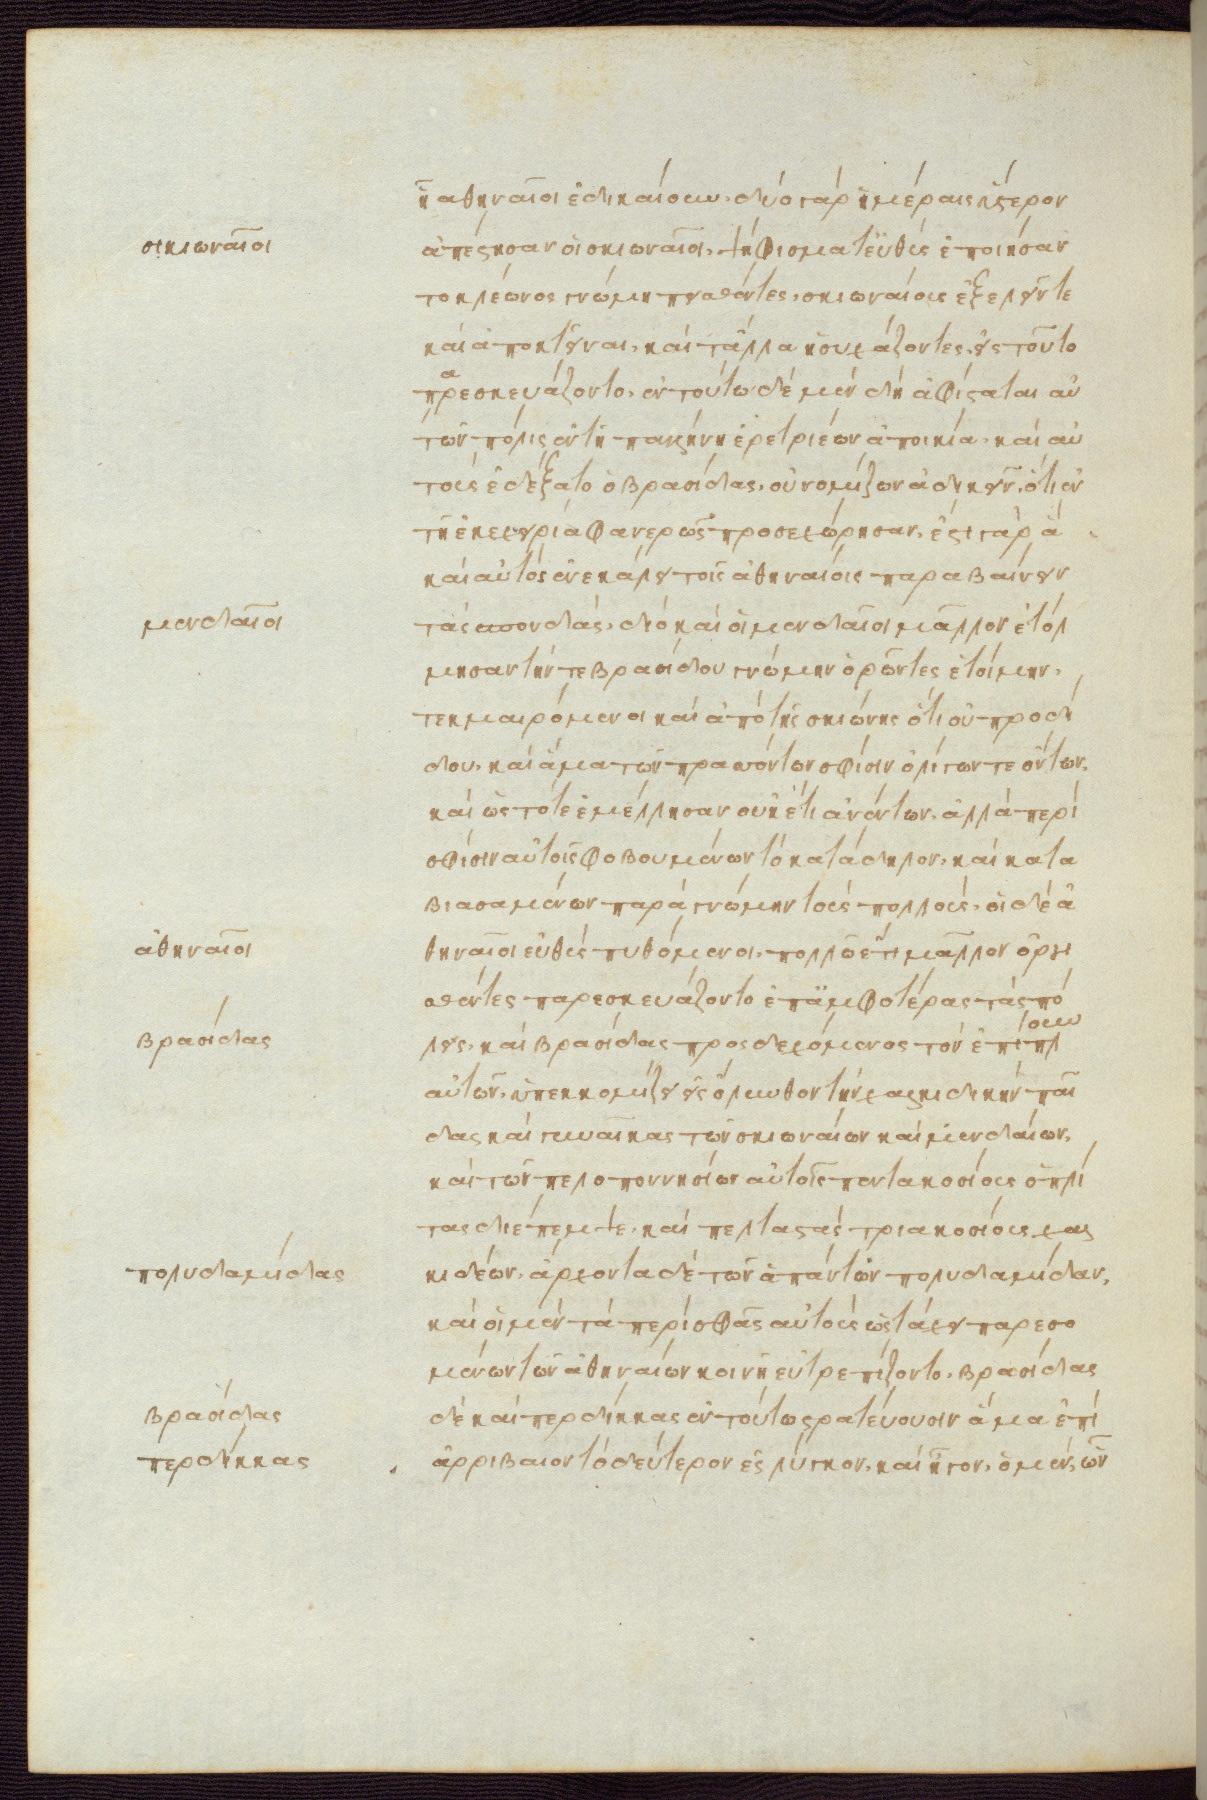 ἢ ἀθηναῖοι ἐδικαίουν. δύο γὰρ ἡμέραις ὕστερον
σικιωναῖοι
ἀπέστησαν οἱ σκιωναῖοι. ψήφισμα τ' εὐθὺς ἐποιήσαν
το κλέωνος γνώμῃ πεισθέντες, σκιωναίους ἐξελεῖν τε
καὶ ἀποκτεῖναι. καὶ τἄλλα ἡσυχάζοντες, εἰς τοῦτο
παρεσκευάζοντο. ἐν τούτω δὲ μένδη ἀφίσταται αὐ
τῶν πόλις ἐν τῇ παλλήνῃ ἐρετριέων ἀποικία. καὶ αὐ
τοὺς ἐδέξατο ὁ βρασίδας, οὐ νομίζων ἀδικεῖν, ὅτι ἐν
τῇ ἐκεχειρία φανερῶς προσεχώρησαν. ἔστι γὰρ ἃ
καὶ αὐτὸς ἐνεκάλει τοῖς ἀθηναίοις παραβαίνειν
μενδαῖοι
τὰς σπονδάς. διὸ καὶ οἱ μενδαῖοι μᾶλλον ἐτόλ
μησαν τήν τε βρασίδου γνώμην ὁρῶντες ἑτοίμην.
τεκμαιρόμενοι καὶ ἀπὸ τῆς σκιώνης ὅτι οὐ προδί
δου. καὶ ἅμα τῶν πρασσόντων σφίσιν ὀλίγων τε ὄντων.
καὶ ὡς τότε ἐμέλλησαν οὐκ έτι ἀνέντων, ἀλλὰ περὶ
σφίσιν αὐτοῖς φοβουμένων τὸ κατάδηλον. καὶ κατα
βιασαμένων παρὰ γνώμην τοὺς πολλούς. οἱ δὲ ἀ
ἀθηναῖοι
θηναῖοι εὐθὺς πυθόμενοι, πολλῶ ἔτι μᾶλλον ὀργι
σθέντες παρεσκευάζοντο ἐπ' ἀμφοτέρας τὰς πό
βρασίδας
λεις. καὶ βρασίδας προςδεχόμενος τὸν ἐπίπλουν
αὐτῶν, ὑπεκκομίζει εἰς ὄλυνθον τὴν χαλκιδικὴν παῖ
δας καὶ γυναῖκας τῶν σκιωναίων καὶ μενδαίων.
καὶ τῶν πελοποννησίων αὐτοῖς πεντακοσίους ὁπλί
τας διέπεμψε. καὶ πελταστὰς τριακοσίους χαλ
πολυδαμίδας
κιδέων. ἄρχοντα δὲ τῶν ἁπάντων πολυδαμίδαν.
καὶ οἱ μὲν τὰ περὶ σφᾶς αὐτοὺς ὡς τάχει παρεσο
μένων τῶν ἀθηναίων κοινῇ εὐτρεπίζοντο. βρασίδας
βρασίδας
δὲ καὶ περδίκκας ἐν τούτω στρατεύουσιν ἅμα ἐπὶ
περδίκκας
ἀρριβαιον τὸ δεύτερον ἐς λύγκον. καὶ ἦγον, ὁ μὲν, ὧν